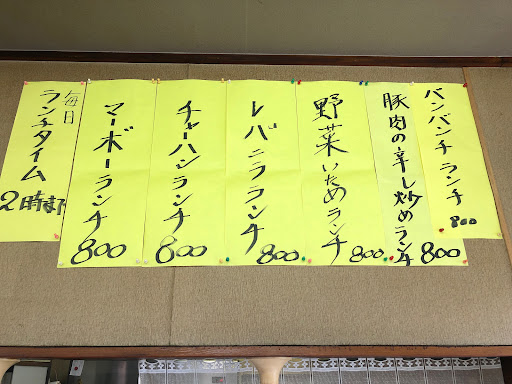 バンバンチランチ
800
豚肉の辛し炒めランチ
800
野菜いためランチ
800
レバニラランチ
800
チャーハンランチ
800
マーボーランチ
800
毎日
ランチタイム
2時まで